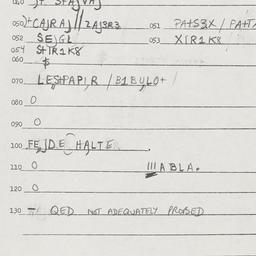 050 CAJRAJ//ZAJ3R3 051 PATS3X/FATT
052 SEJGL 053 XIR1K8
054 STIR1K8
060 $
070 LESTPAPIR/B1BULO+/
080 O
090 O
100 FEJDE HALTE
110 O III ABLA.
120 O
130 — QED NOT ADEQUATELY PROBED